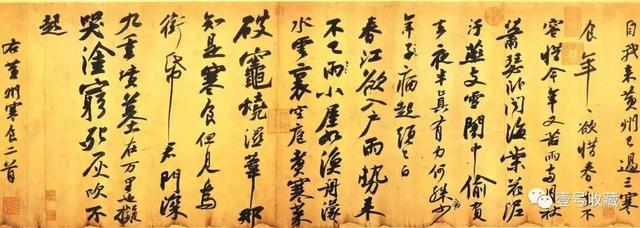 自我来黄州已過三寒
食年〻欲惜春春去不
容惜今年又苦雨兩月秋
蕭瑟卧聞海棠花泥
汙燕支雪闇中偷負
去夜半真有力何殊少
年子病起頭已白
春江欲入戶雨勢来
不已雨小屋如漁舟濛〻
水雲裏空庖煮寒菜
破竈燒濕葦那
知是寒食但見烏
銜帋君門深
九重墳墓在万里也擬
哭塗窮死灰吹不
起
右黄州寒食二首
壹号收藏